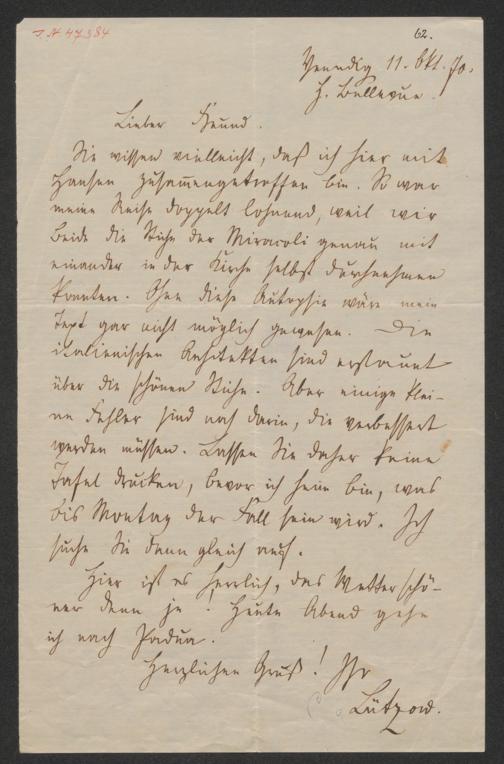 J. N. 47384
62.
Venedig 11. Okt. 70.
H. Bellevue.
Lieber Freund.
Sie wissen vielleicht, daß ich hier mit
Hansen zusam̄engetroffen bin. So war
meine Reise doppelt lohnend, weil wir
Beide die Stiche der Miracoli genau mit
einander in der Kirche selbst durchnehmen
konnten. Ohne diese Autopsie wäre mein
Text gar nicht möglich gewesen. Die
italienischen Architekten sind erstaunt
über die schönen Stiche. Aber einige klei-
ne Fehler sind noch darin, die verbessert
werden müssen. Lassen Sie daher keine
Tafel drucken, bevor ich heim bin, was
bis Montag der Fall sein wird. Ich
suche Sie dann gleich auf.
Hier ist es herrlich, das Wetter schö-
ner denn je. Heute Abend gehe
ich nach Padua.
Herzlichen Gruß! Ihr
Lützow.